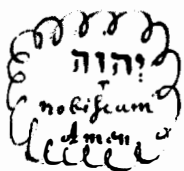 יְהוָה
nobiſcum
Amen